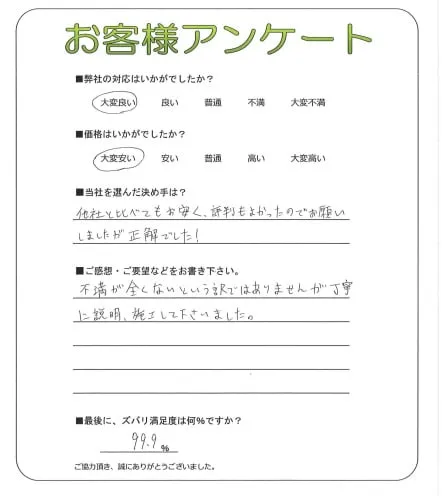 お客様アンケート
■弊社の対応はいかがでしたか?
大変良い 良い 普通 不満 大変不満
■価格はいかがでしたか?
大変安い 安い 普通 高い 大変高い
■当社を選んだ決め手は?
他社と比べてもお安く、評判もよかったのでお願い
しましたが正解でした!
■ご感想・ご要望などをお書き下さい。
不満が全くないという訳ではありませんが丁寧
に説明、施工して下さいました。
■最後に、ズバリ満足度は何%ですか?
99.9 %
ご協力頂き、誠にありがとうございました。